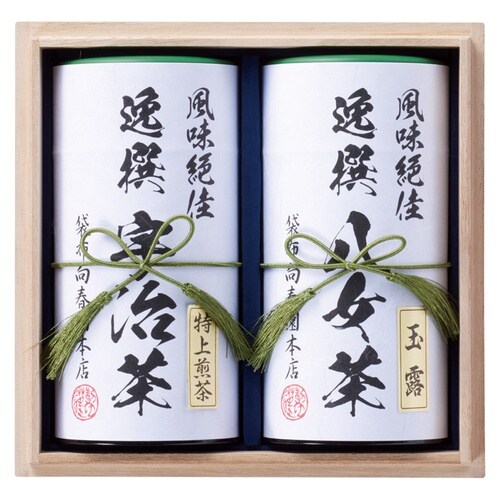 風味絶佳
逸撰
宇治茶
袋布向春園本店
特上煎茶
風味絶佳
逸撰
八女茶
袋布向春園本店
玉露